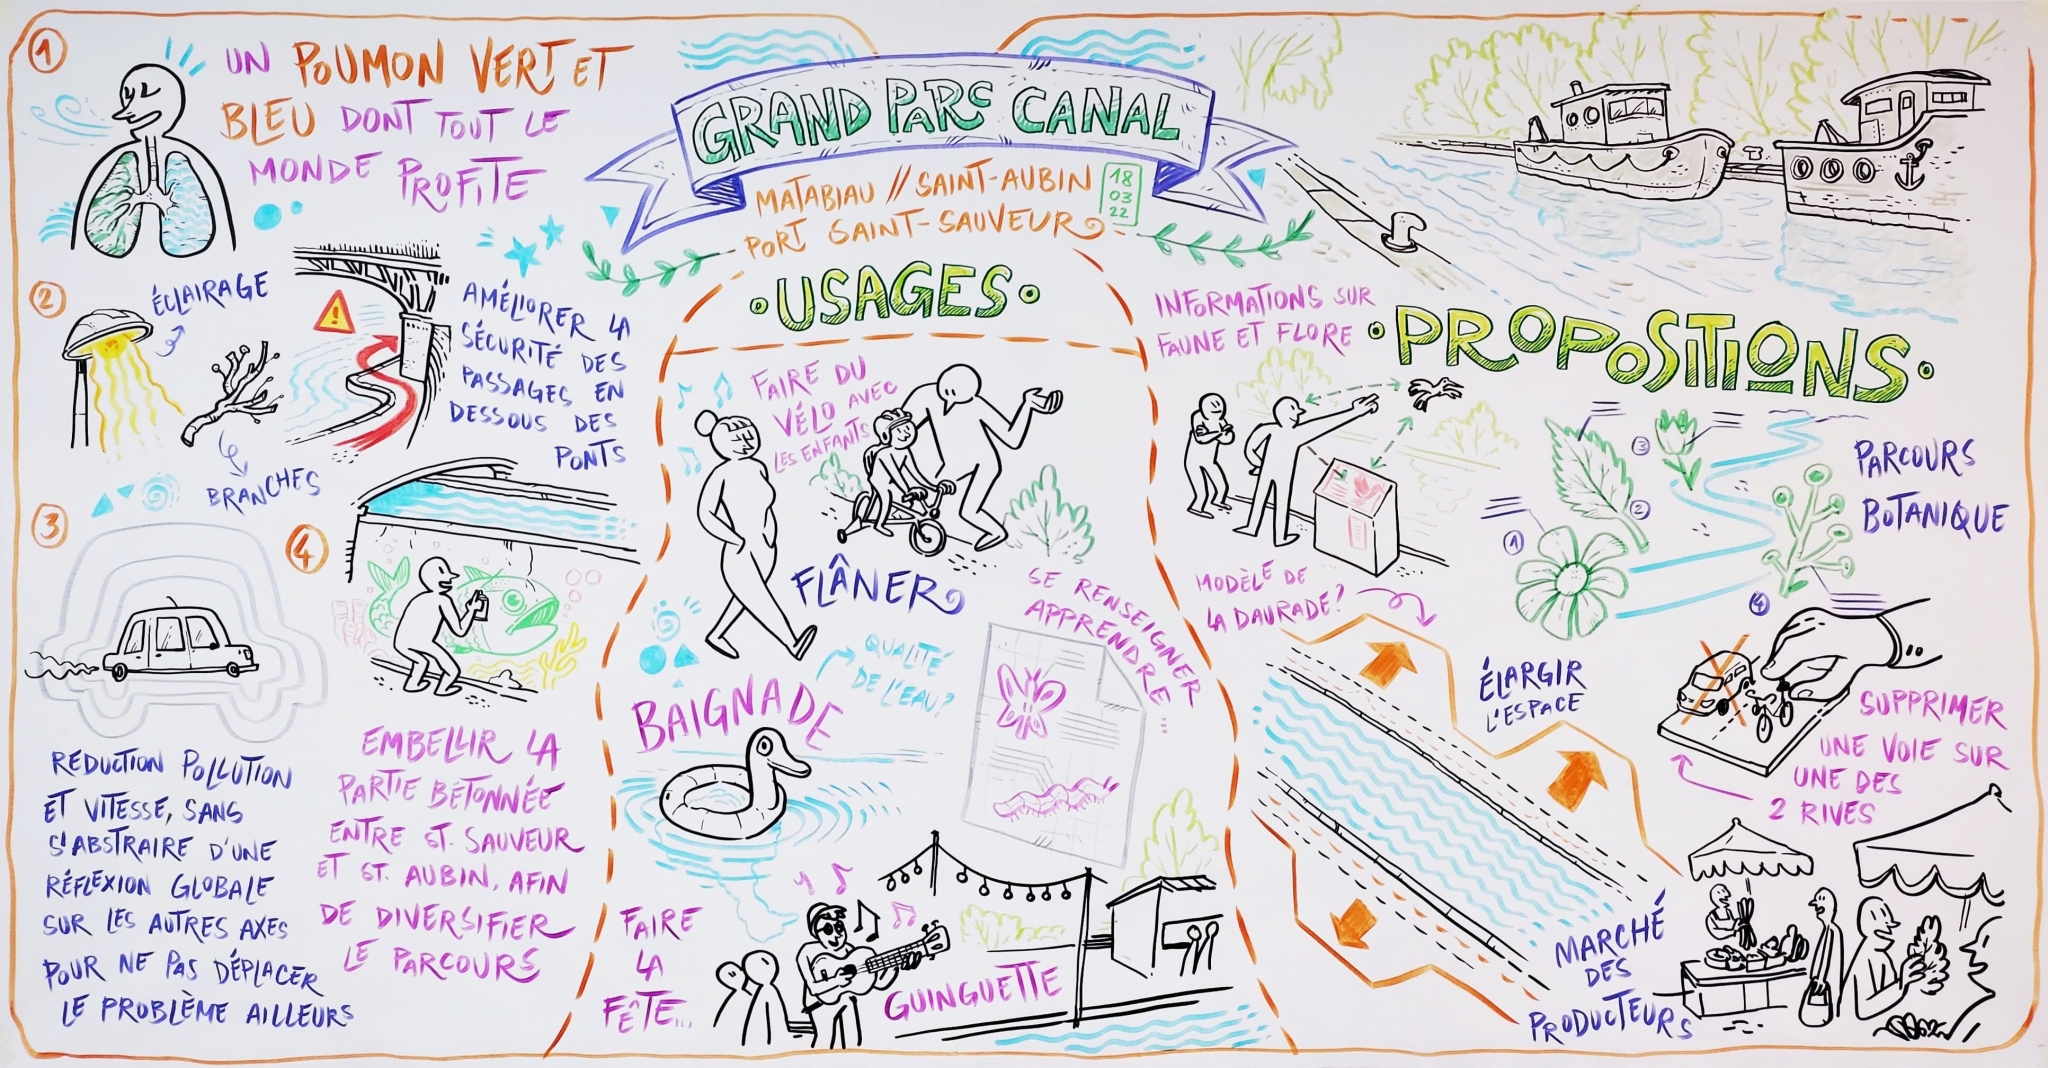 GRAND PARC CANAL
MATABIAU // SAINT-AUBIN
PORT SAINT-SAUVEUR
18
03
22
1
UN POUMON VERT ET
BLEU DONT TOUT LE
MONDE PROFITE
2
ÉCLAIRAGE
BRANCHES
!
AMÉLIORER LA
SÉCURITÉ DES
PASSAGES EN
DESSOUS DES
PONTS
3
REDUCTION POLLUTION
ET VITESSE, SANS
S'ABSTRAIRE D'UNE
RÉFLEXION GLOBALE
SUR LES AUTRES AXES
POUR NE PAS DÉPLACER
LE PROBLÈME AILLEURS
4
EMBELLIR LA
PARTIE BÉTONNÉE
ENTRE ST. SAUVEUR
ET ST. AUBIN, AFIN
DE DIVERSIFIER
LE PARCOURS
• USAGES •
FAIRE DU
VÉLO AVEC
LES ENFANTS
FLÂNER
BAIGNADE
QUALITÉ
DE L'EAU?
SE RENSEIGNER
APPRENDRE...
FAIRE
LA
FÊTE...
GUINGUETTE
• PROPOSITIONS •
INFORMATIONS SUR
FAUNE ET FLORE
PARCOURS
BOTANIQUE
1
2
3
4
MODÈLE DE
LA DAURADE?
ÉLARGIR
L'ESPACE
SUPPRIMER
UNE VOIE SUR
UNE DES
2 RIVES
MARCHÉ
DES
PRODUCTEURS